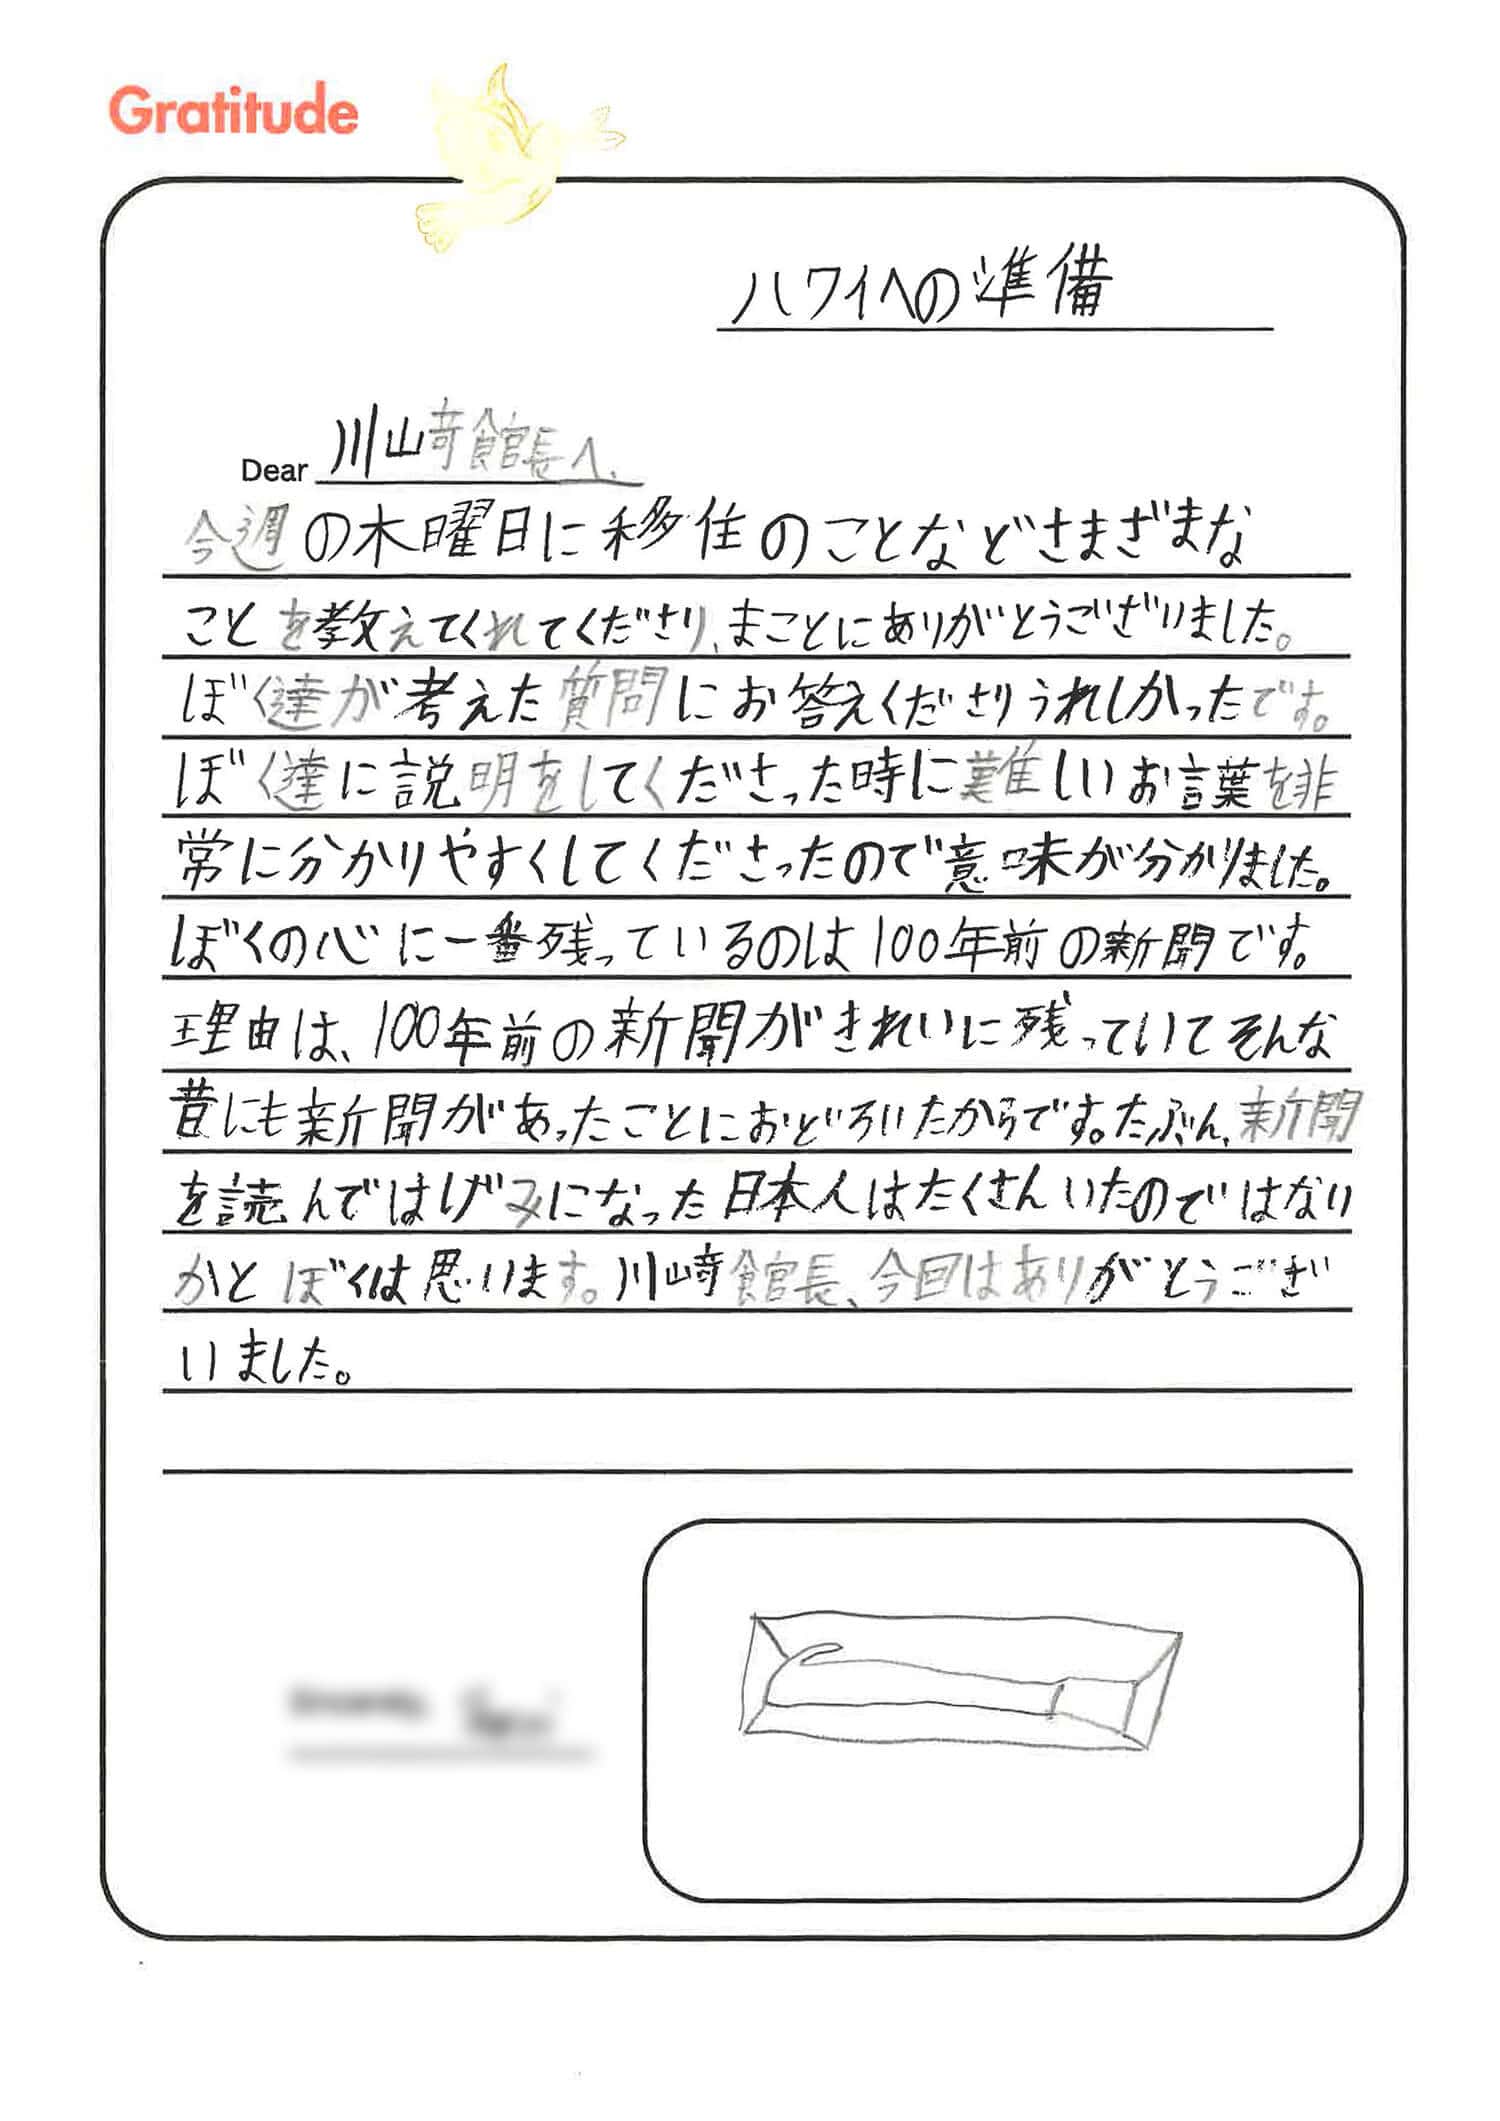 Gratitude
ハワイへの準備
Dear 川崎館長へ、
今週の木曜日に移住のことなどさまざまな
ことを教えてくれてくださり、まことにありがとうございました。
ぼく達が考えた質問にお答えくださりうれしかったです。
ぼく達に説明をしてくださった時に難しいお言葉を非
常に分かりやすくしてくださったので意味が分かりました。
ぼくの心に一番残っているのは100年前の新聞です。
理由は、100年前の新聞がきれいに残っていてそんな
昔にも新聞があったことにおどろいたからです。たぶん、新聞
を読んではげみになった日本人はたくさんいたのではない
かとぼくは思います。川崎館長、今回はありがとうござ
いました。